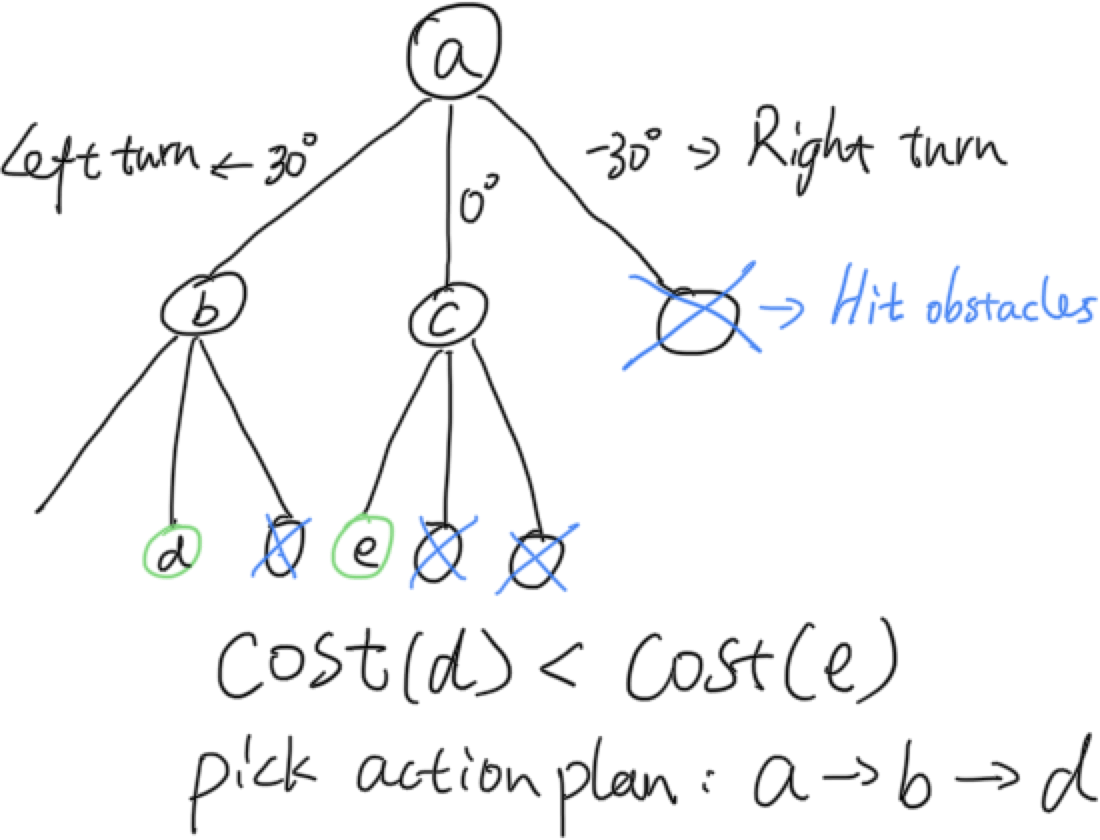 a
Left turn ← 30°
0°
-30° → Right turn
b
c
→ Hit obstacles
d
e
Cost(d) < Cost(e)
pick action plan : a → b → d